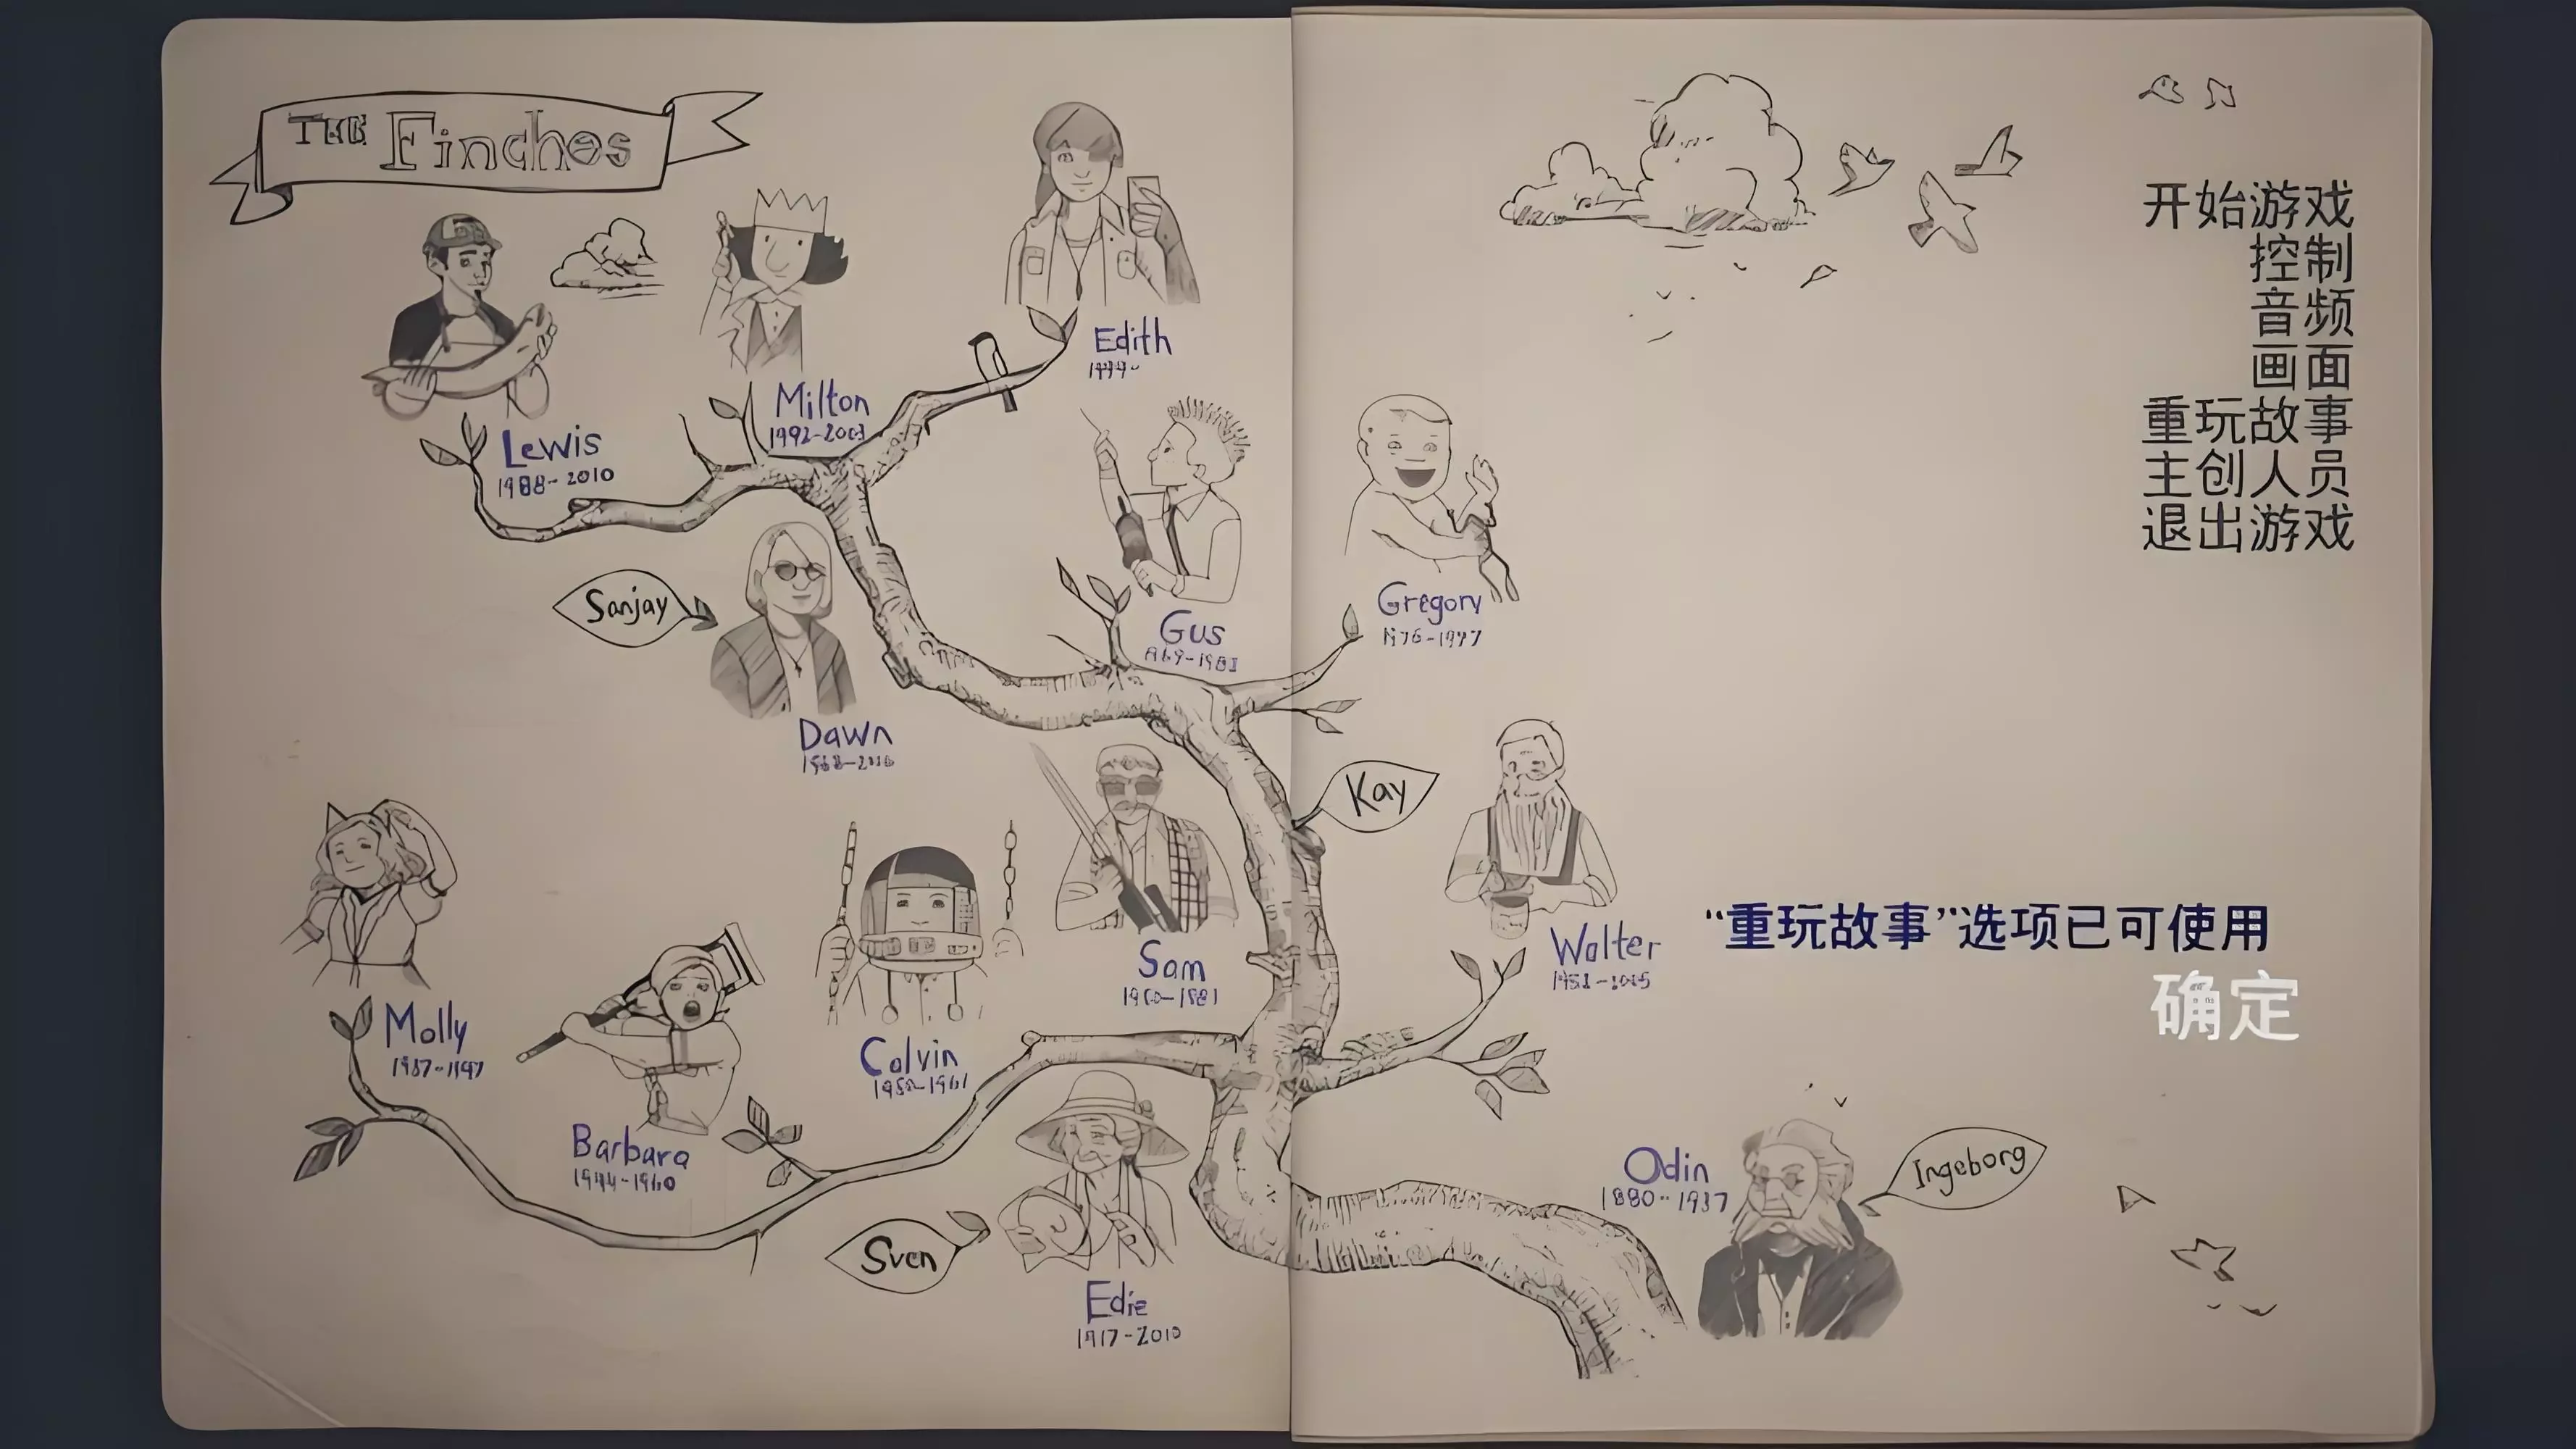 THE Finches
Edith
1999-
Milton
1992-2003
Lewis
1988-2010
Gus
1969-1982
Gregory
1976-1977
Sanjay
Dawn
1968-2016
Kay
Sam
1950-1983
Walter
Molly
1937-1947
Calvin
1950-1961
Barbara
1944-1960
Sven
Edie
1917-2010
Odin
1880-1937
Ingeborg
开始游戏
控制
音频
画面
重玩故事
主创人员
退出游戏
“重玩故事”选项已可使用
确定